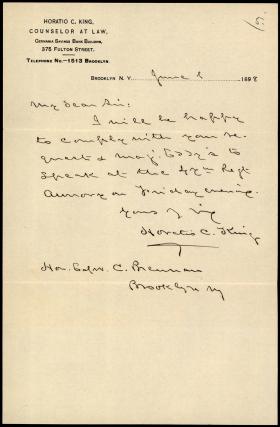 HORATIO C. KING,
COUNSELOR AT LAW,
GERMANIA SAVINGS BANK BUILDING,
375 FULTON STREET.
TELEPHONE NO.–1513 BROOKLYN.
BROOKLYN N. Y. June 1898
My dear Sir:
I will be happy
to comply with your re-
quest & Maj. Eddy's to
speak at the 47th Regt
Armory on Friday evening.
Yours
Horatio C. King
Hon. Edw. C. Brennan
Brooklyn NY